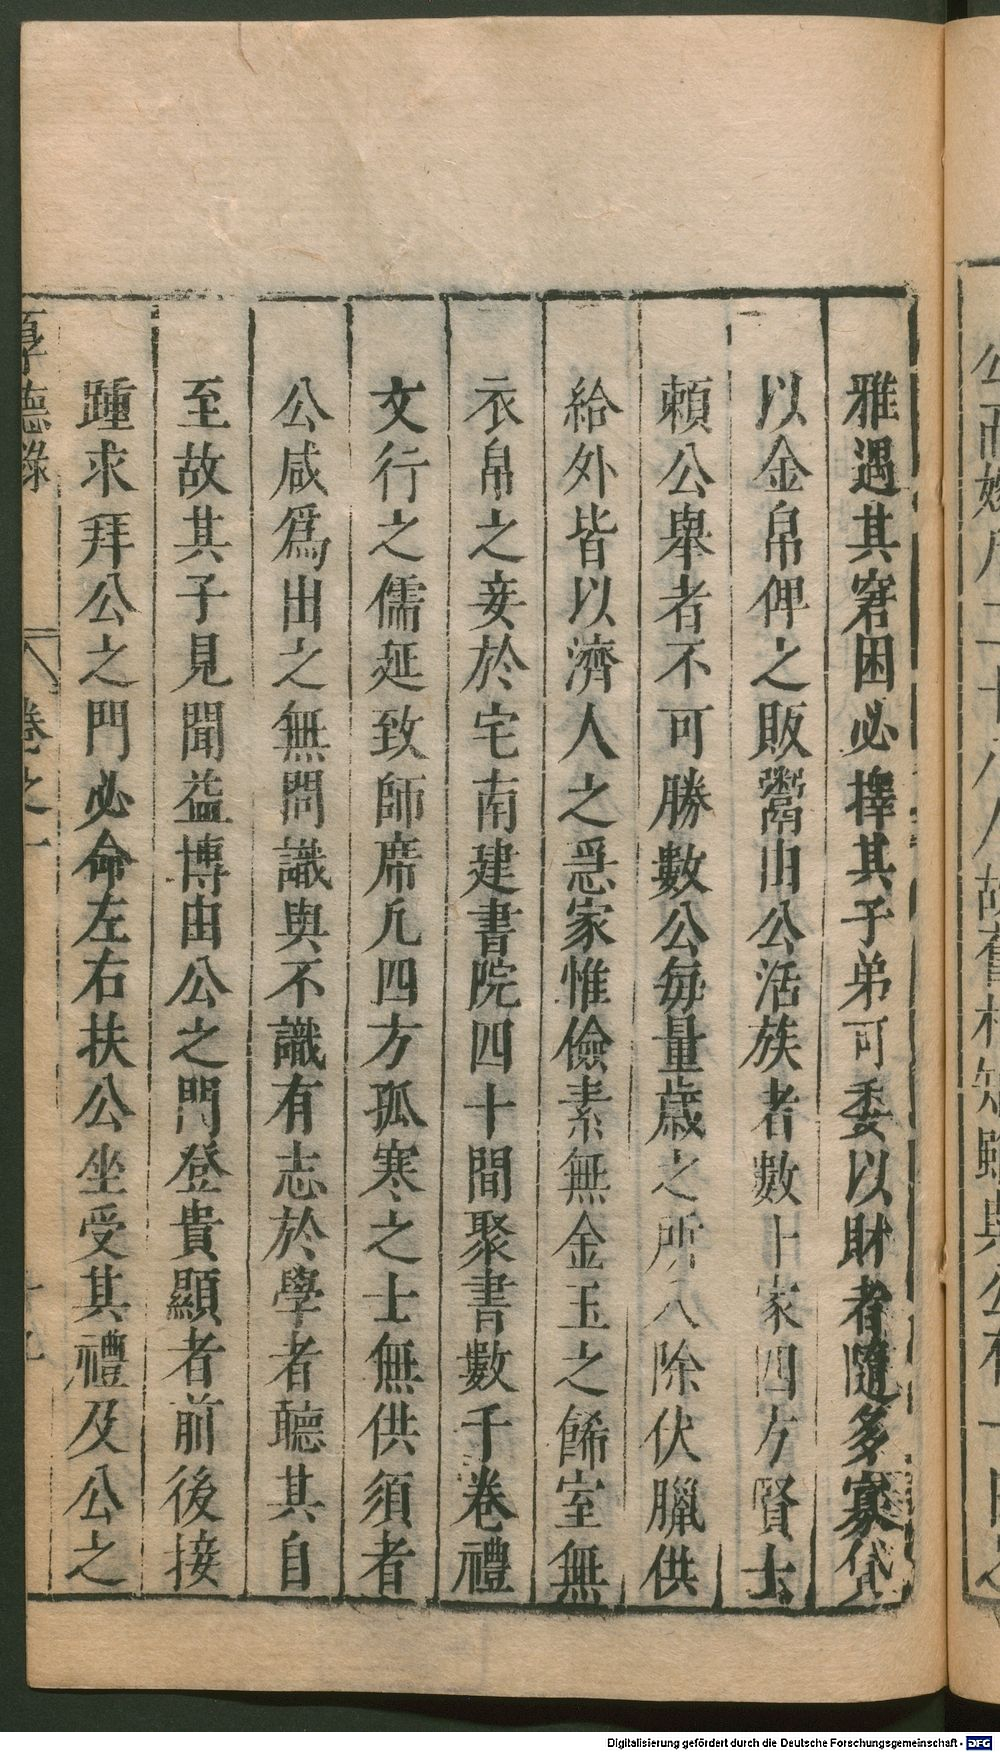 雅遇其窘困必擇其子弟可委以財者隨多寡貸
以金帛俾之販鬻由公活族者數十家四方賢士
賴公舉者不可勝數公每量歲之所入除伏臘供
給外皆以濟人之急家惟儉素無金玉之餙室無
衣帛之妾於宅南建書院四十間聚書數千卷禮
文行之儒延致師席凢四方孤寒之士無供須者
公咸爲出之無問識與不識有志於學者聽其自
至故其子見聞益博由公之門登貴顯者前後接
踵求拜公之門必命左右扶公坐受其禮及公之
厚德錄
卷之一
十九
Digitalisierung gefördert durch die Deutsche Forschungsgemeinschaft - DFG